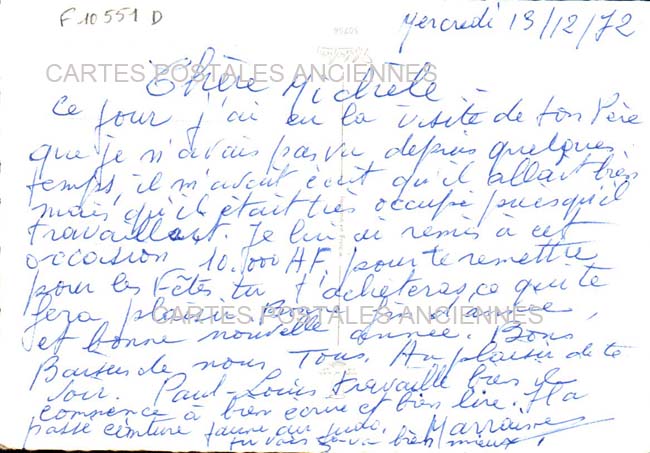 F 10 551 D
Mercredi 13/12/72
CARTES POSTALES ANCIENNES
Chère Michèle
Ce jour j'ai eu la visite de ton Père
que je n'avais pas vu depuis quelques
temps, il m'avait écrit qu'il allait bien
mais qu'il était très occupé puisqu'il
travaillait. Je lui ai remis à cet
occasion 10.000 AF. pour te remettre
pour les Fêtes tu t'achèteras ce qui te
fera plaisir Bonne fin d'année
CARTES POSTALES ANCIENNES
et bonne nouvelle année. Bons
Baisers de nous Tous. Au plaisir de te
voir. Paul-Louis travaille bien
commence à bien écrire et bien lire. Il a
passé ceinture jaune au judo. Marraine
tu vois ça va bien mieux.